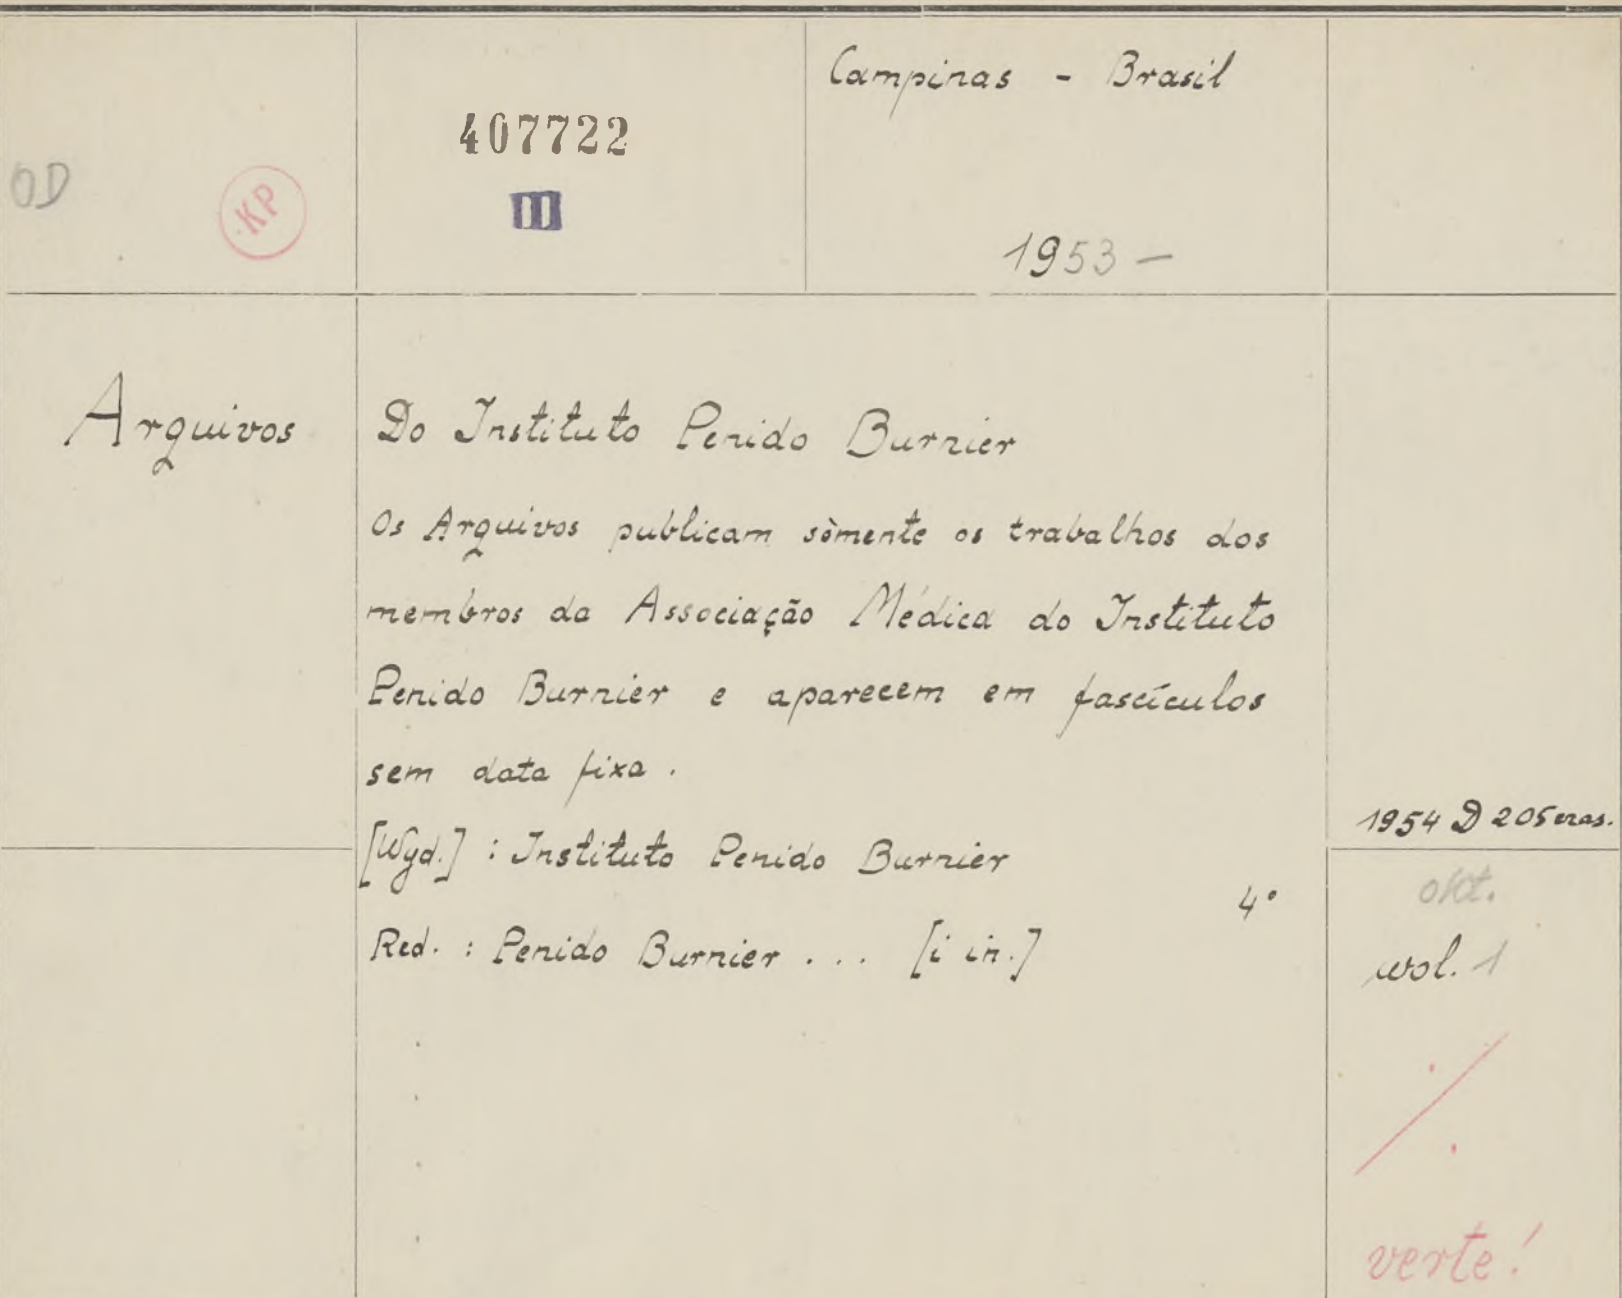 Campinas - Brasil
407722
OD
KP
III
1953 -
Arquivos
Do Instituto Penido Burnier
Os Arquivos publicam sòmente os trabalhos dos
membros da Associação Médica do Instituto
Penido Burnier e aparecem em fascículos
sem data fixa .
[Wyd.] : Instituto Penido Burnier
4°
Red. : Penido Burnier . . . [i in.]
1954 D 205 czas.
okt.
wol. 1
verte!